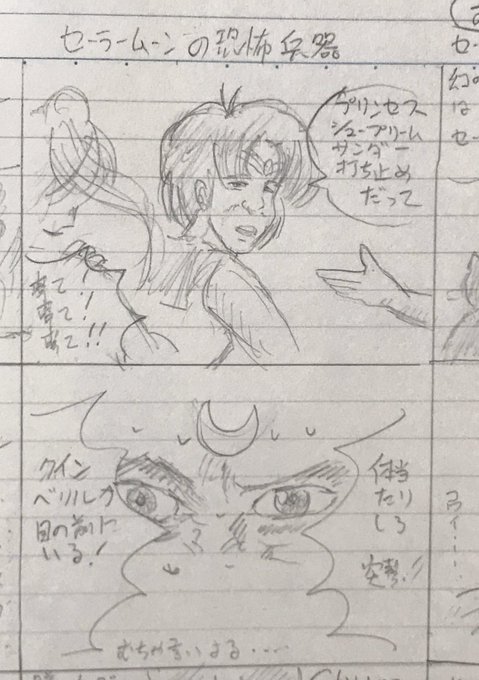 セーラームーンの恐怖兵器
プリンセス
シュープリーム
サンダー
打ち止め
だって
セー
幻の
は
セー
クイン
ベリルが
目の前に
いる!
体当
たり
しろ
突撃!!
むちゃ言いよる・・・・